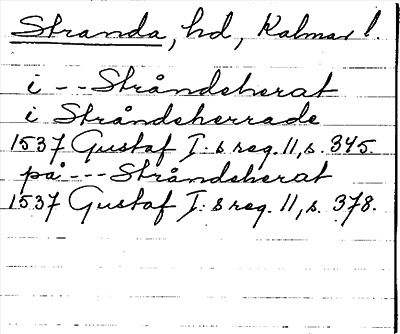 Stranda, hd, Kalmar l.
i - - Stråndeherat
i Stråndeherrade
1537 Gustaf I:s reg. 11, s. 345.
på - - - Stråndeherat
1537 Gustaf I:s reg. 11, s. 378.